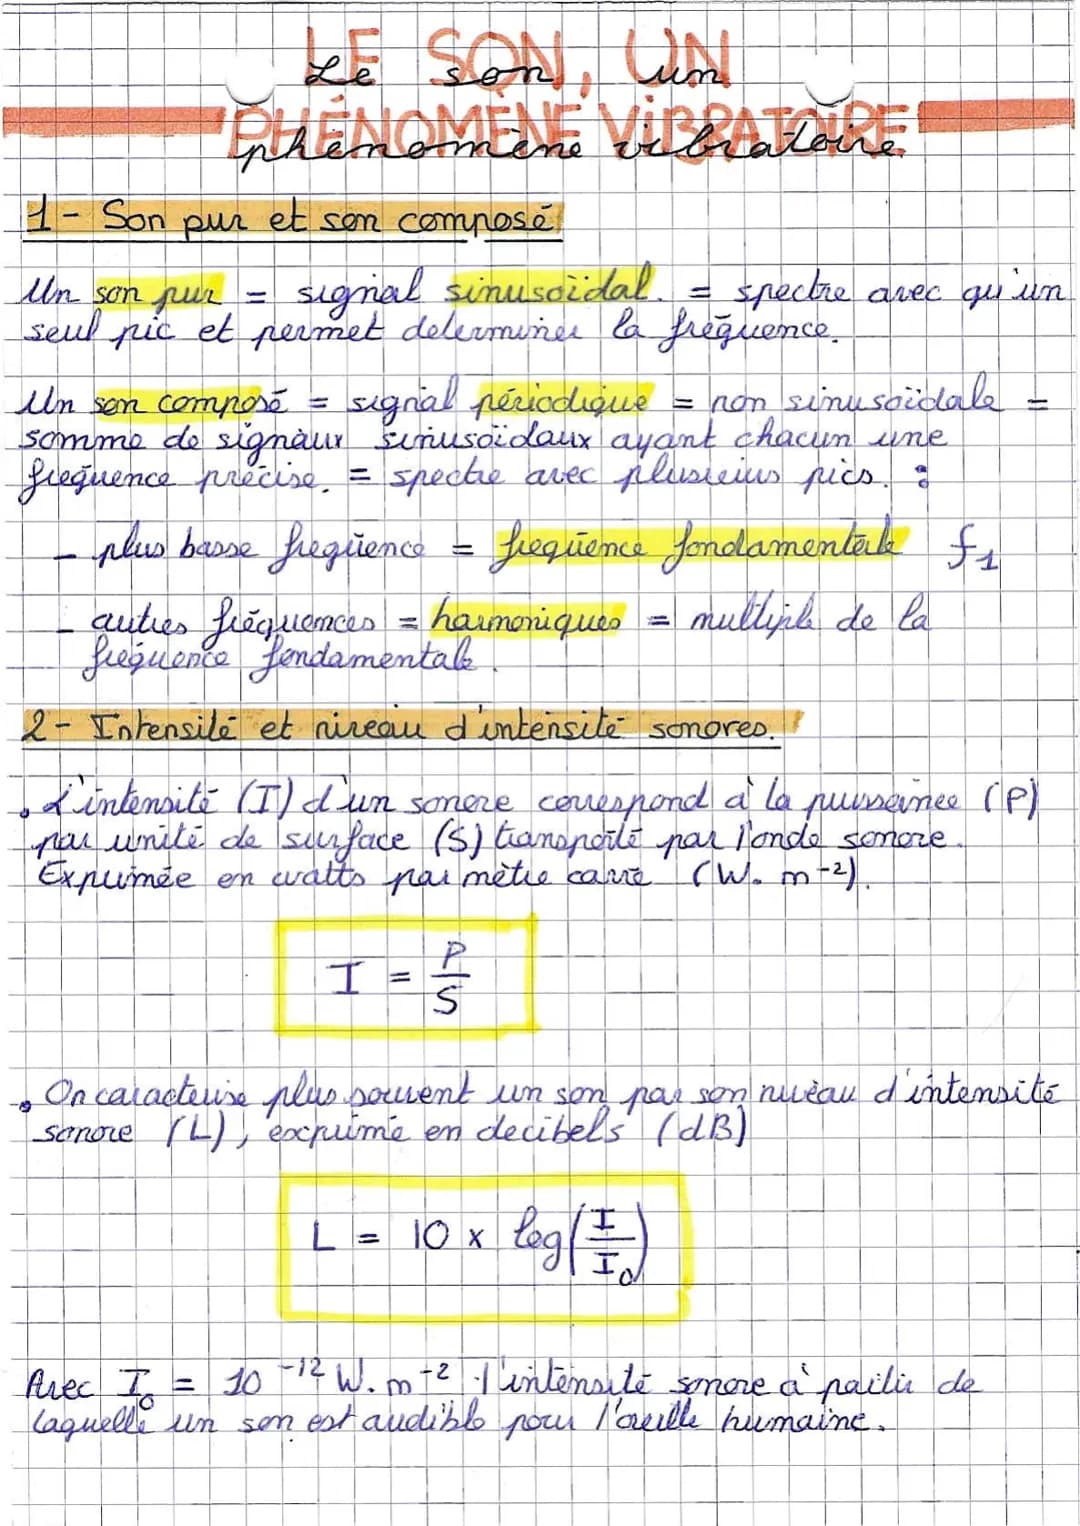 LE SON, UN
Le son, un
PHÉNOMÈNE ViBRATOIRE
phénomène vibratoire.
1 - Son pur et son composé
Un son pur = signal sinusoïdal. = spectre avec qu'un
seul pic et permet determiner la fréquence.
Un son composé = signal périodique = non sinusoïdale =
somme de signaux sinusoïdaux ayant chacun une
frequence précise. = spectre avec plusieurs pics. :
- plus basse frequence = frequence fondamentale f₁
- autres fréquences = harmoniques = multiple de la
frequence fondamentale.
2 - Intensité et niveau d'intensité sonores.
• L'intensité (I) d'un sonore correspond à la puissance (P)
par unité de surface (S) transporté par l'onde sonore.
Exprimée en watts par mètre carré (W. m⁻²).
I = P/S
• On caracterise plus souvent un son par son niveau d'intensité
sonore (L), exprimé en decibels (dB)
L = 10 x log(I/I₀)
Avec I₀ = 10⁻¹² W. m⁻² l'intensité sonore à partir de
laquelle un son est audible pour l'oreille humaine.